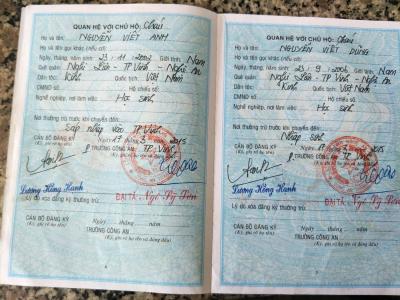 QUAN HỆ VỚI CHỦ HỘ: Cháu
Họ và tên: NGUYỄN VIẾT ANH
Họ và tên gọi khác (nếu có):
Ngày, tháng, năm sinh: 23 - 11 - 2002 Giới tính: Nam
Quê quán: Nghi Liên - TP Vinh - Nghệ An
Dân tộc: Kinh Quốc tịch: Việt Nam
CMND số: Hộ chiếu số:
Nghề nghiệp, nơi làm việc: Học sinh
Nơi thường trú trước khi chuyển đến:
Sáp nhập vào TP Vinh
Ngày 17 tháng năm 2015
CÁN BỘ ĐĂNG KÝ
(Ký, ghi rõ họ tên)
TRƯỞNG CÔNG AN TP Vinh
Lương Hồng Hạnh
ĐẠI TÁ
Lý do xóa đăng ký thường trú:
Ngày tháng năm
CÁN BỘ ĐĂNG KÝ
(Ký, ghi rõ họ tên)
TRƯỞNG CÔNG AN
(Ký, ghi rõ họ tên và đóng dấu)
QUAN HỆ VỚI CHỦ HỘ: Cháu
Họ và tên: NGUYỄN VIẾT DŨNG
Họ và tên gọi khác (nếu có):
Ngày, tháng, năm sinh: 23 - 9 - 2006 Giới tính: Nam
Quê quán: Nghi Liên - TP Vinh - Nghệ An
Dân tộc: Kinh Quốc tịch: Việt Nam
CMND số: Hộ chiếu số:
Nghề nghiệp, nơi làm việc: Học sinh
Nơi thường trú trước khi chuyển đến:
Nhập sinh
Ngày 17 tháng năm 2015
CÁN BỘ ĐĂNG KÝ
(Ký, ghi rõ họ tên)
TRƯỞNG CÔNG AN TP Vinh
Lương Hồng Hạnh
ĐẠI TÁ
Lý do xóa đăng ký thường trú:
Ngày tháng năm
CÁN BỘ ĐĂNG KÝ
(Ký, ghi rõ họ tên)
TRƯỞNG CÔNG AN
(Ký, ghi rõ họ tên và đóng dấu)